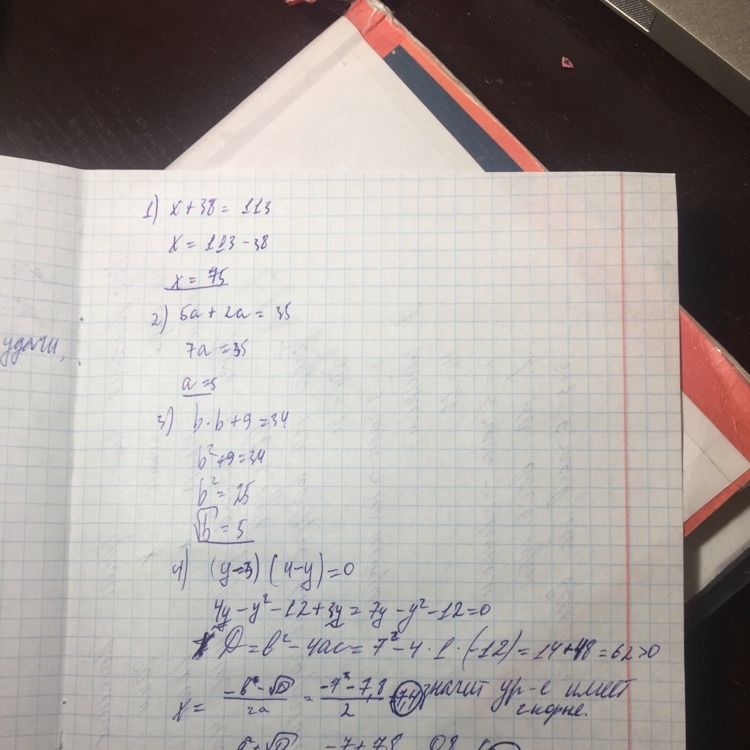 удачи,
1) x + 38 = 113
x = 113 - 38
x = 75
2) 5a + 2a = 35
7a = 35
a = 5
3) b · b + 9 = 34
b² + 9 = 34
b² = 25
√b = 5
4) (y-3) (4-y) = 0
4y - y² - 12 + 3y = 7y - y² - 12 = 0
D = b² - 4ac = 7² - 4 · 1 · (-12) = 14 + 48 = 62 > 0
x = -b² - √D / 2a = -7² - 7,8 / 2 значит ур-е имеет
2 корне.
-7 + 7,8